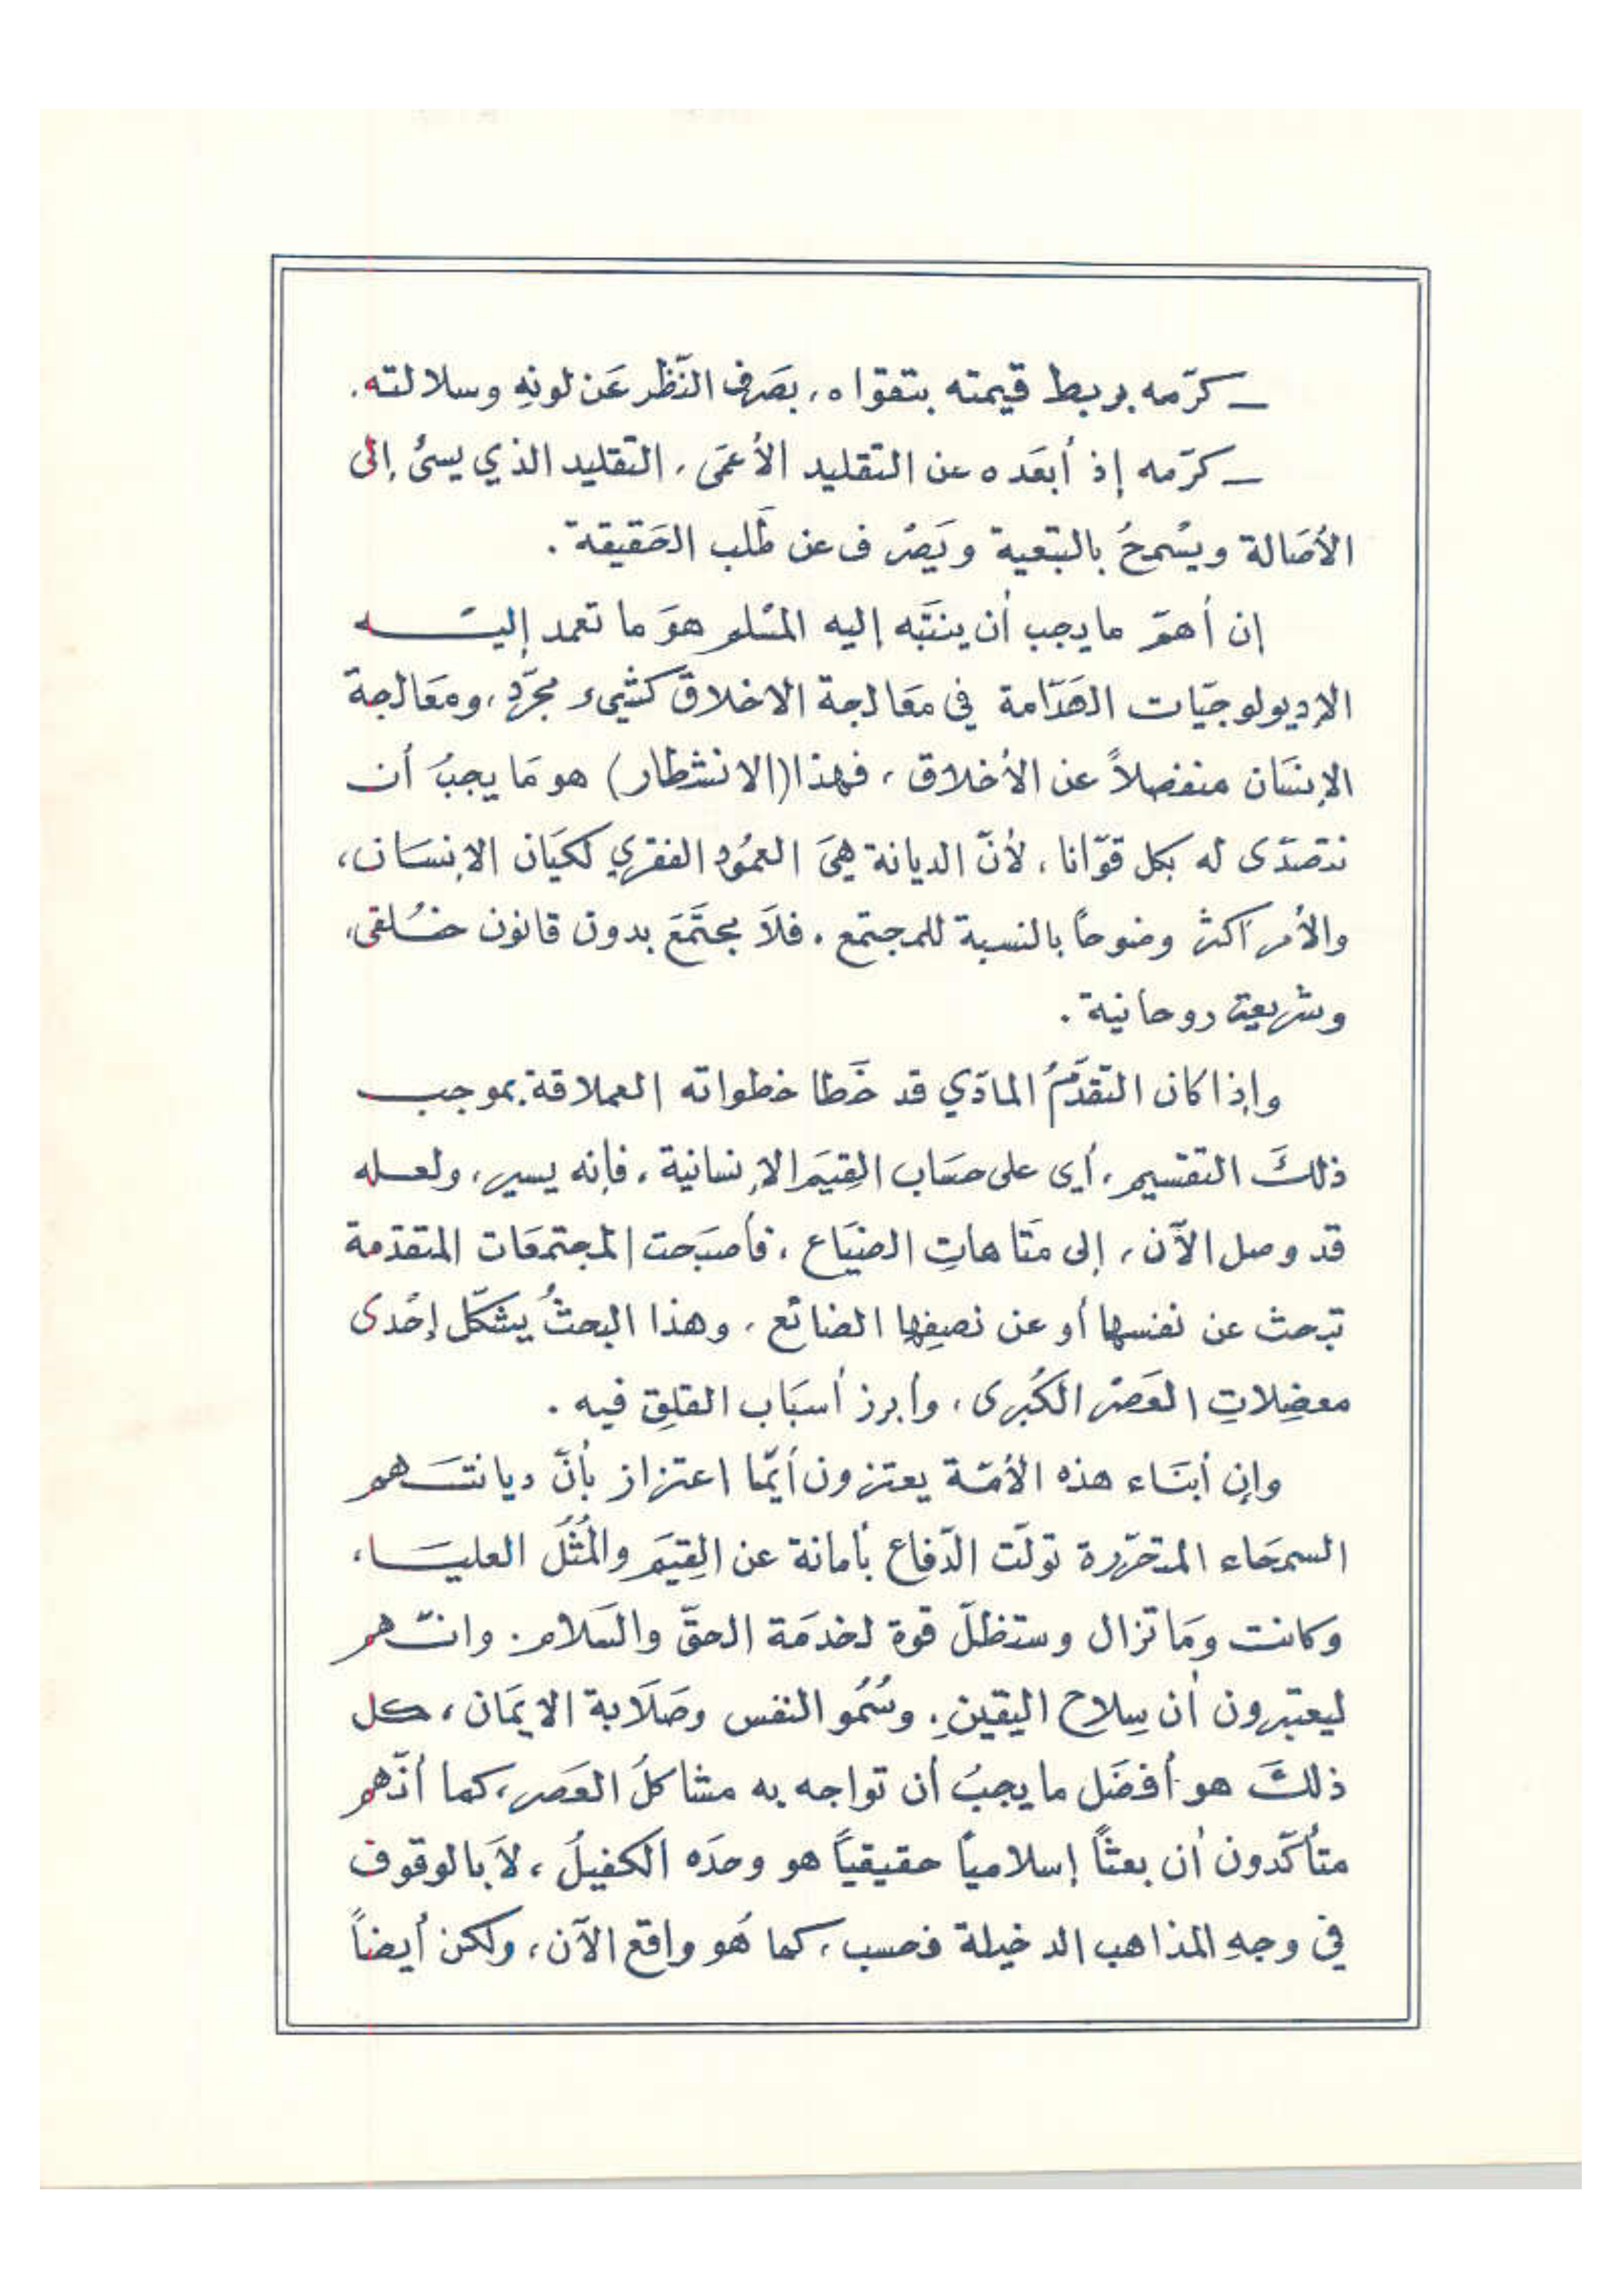 ــ كرّمه بربط قيمته بتقواه، بصَرف النّظر عَن لونهِ وسلالته.
ــ كرّمه إذ أبعَده عن التقليد الأعمَى، التقليد الذي يسئُ إلى
الأصَالة ويسْمحُ بالتبعية ويَصْرف عن طَلب الحَقيقة.
إن أهمّ ما يجب أن ينتَبه إليه المسْلم هوَ ما تعمد إليـــه
الإديولوجيّات الهَدّامة في مَعَالجة الاخلاق كشيء مجرّد، ومعَالجة
الإنسَان منفصلاً عن الأخلاق، فهذا (الانشطار) هو مَا يجبُ أن
نتصدّى له بكل قوّانا، لأنّ الديانة هيَ العمُود الفقري لكيَان الإنسَان،
والأمر أكثر وضوحاً بالنسبة للمجتمع. فلاَ مجتَمَعَ بدون قانون خُلقي،
وشريعة روحانية.
وإذا كان التقدّمُ المادّي قد خَطا خطواته العملاقة بموجب
ذلكَ التقسيم، أي على حسَاب القِيَم الإنسانية، فإنه يسير، ولعله
قد وصل الآن، إلى مَتاهاتِ الضيَاع، فأصبَحت المجتمعَات المتقدّمة
تبحث عن نفسها أو عن نصِفِها الضائع، وهذا البحثُ يشكّل إحْدى
معضِلاتِ العَصْر الكُبرى، وأبرز أسبَاب القلِق فيه.
وإن أبنَاء هذه الأمّة يعتزون أيّما اعتزاز بأنّ ديانتَهم
السمحَاء المتحرّرة تولّت الدّفاع بأمانة عن القِيَم والمُثُل العليَا،
وكانت ومَا تزال وستظلّ قوة لخدمَة الحقّ والسَلام. وانّهم
ليعتبرون أن سِلاح اليقينِ. وسُمُو النفس وصَلاَبة الإيمَان، كل
ذلكَ هو أفضَل ما يجبُ أن تواجه به مشاكلُ العَصر، كما أنّهم
متأكّدون أن بعثاً إسلامياً حقيقياً هو وحدَه الكفيلُ، لاَ بالوقوف
في وجهِ المذاهب الدخيلة فحسب، كما هُو واقع الآن، ولكن أيضاً